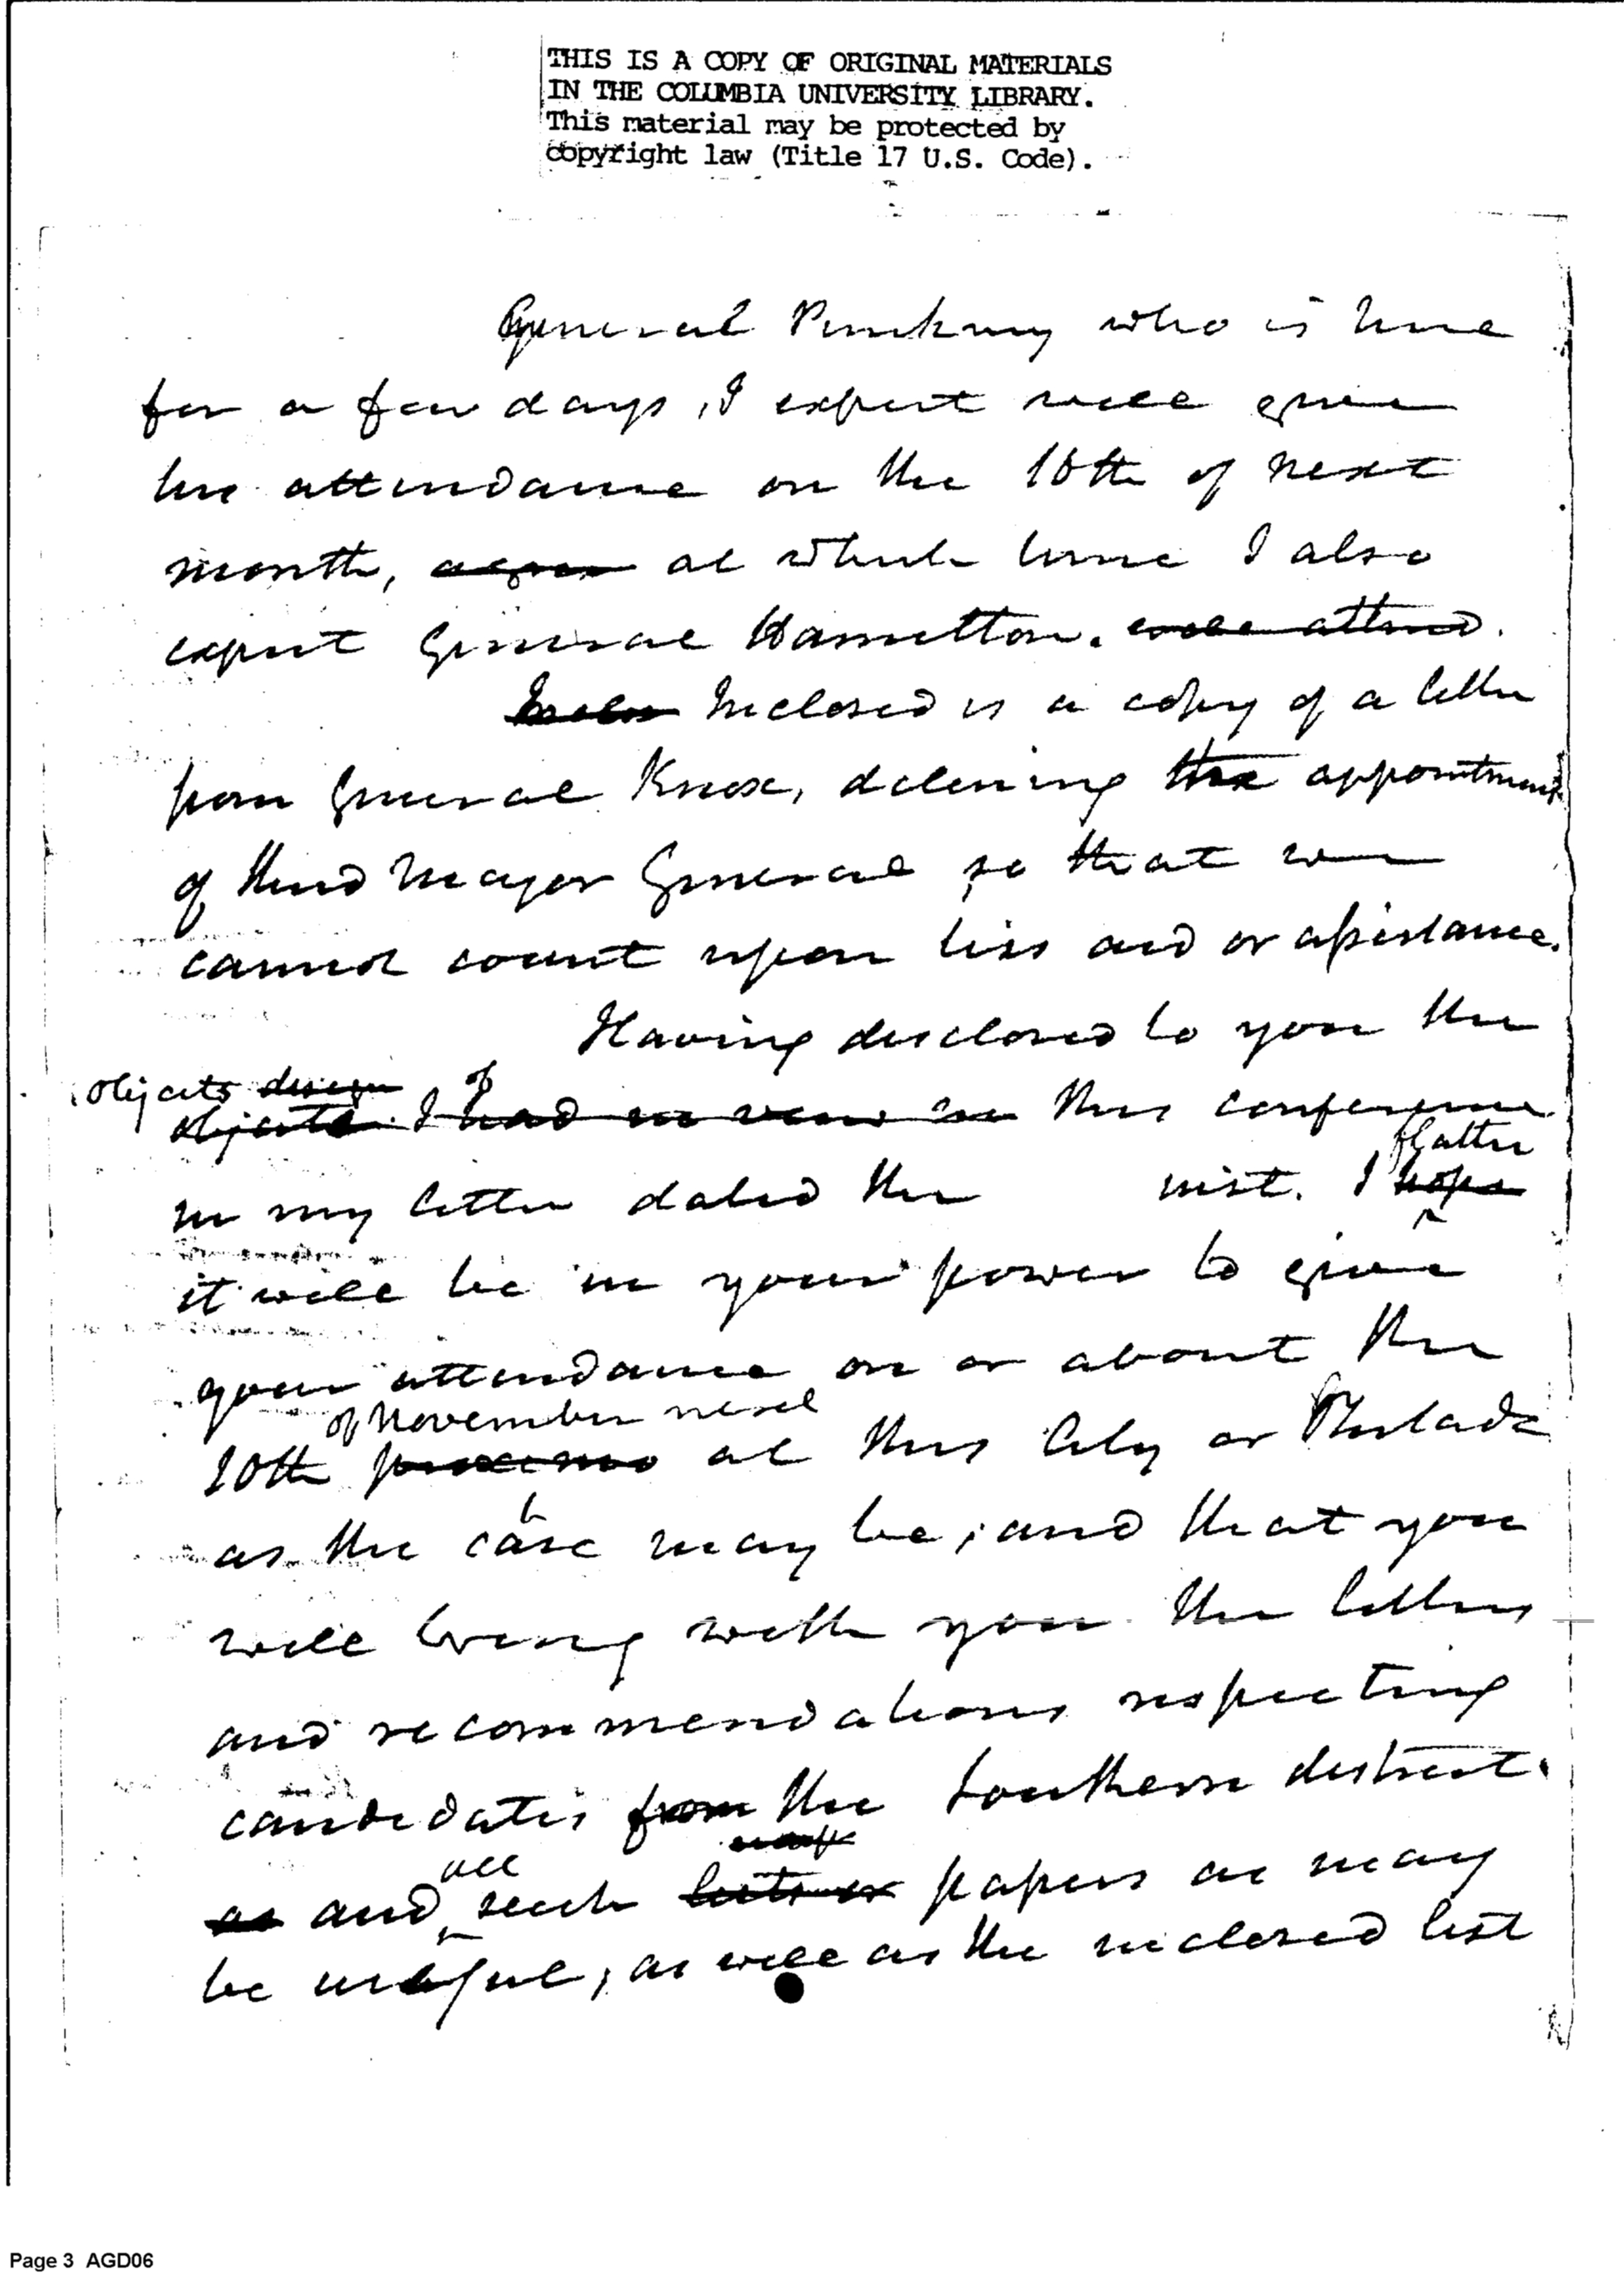 THIS IS A COPY OF ORIGINAL MATERIALS
IN THE COLUMBIA UNIVERSITY LIBRARY.
This material may be protected by
copyright law (Title 17 U.S. Code).
General Pinckney who is here
for a few days, I expect will give
his attendance on the 10th of next
month, at which time I also
expect General Hamilton. will attend.
Inclosed is a copy of a letter
from General Knox, declining the appointment
of third Major General so that we
cannot count upon his aid or assistance.
Having disclosed to you the
objects design of
objects I had in view in this conference
flatter
in my letter dated the inst. I hope
it will be in your power to give
your attendance on or about the
of November next
10th proximo at this City or Philada
as the case may be, and that you
will bring with you the letters
and recommendations respecting
candidates from the Southern district.
all
as and such papers as may
be useful, as well as the inclosed list
Page 3 AGD06